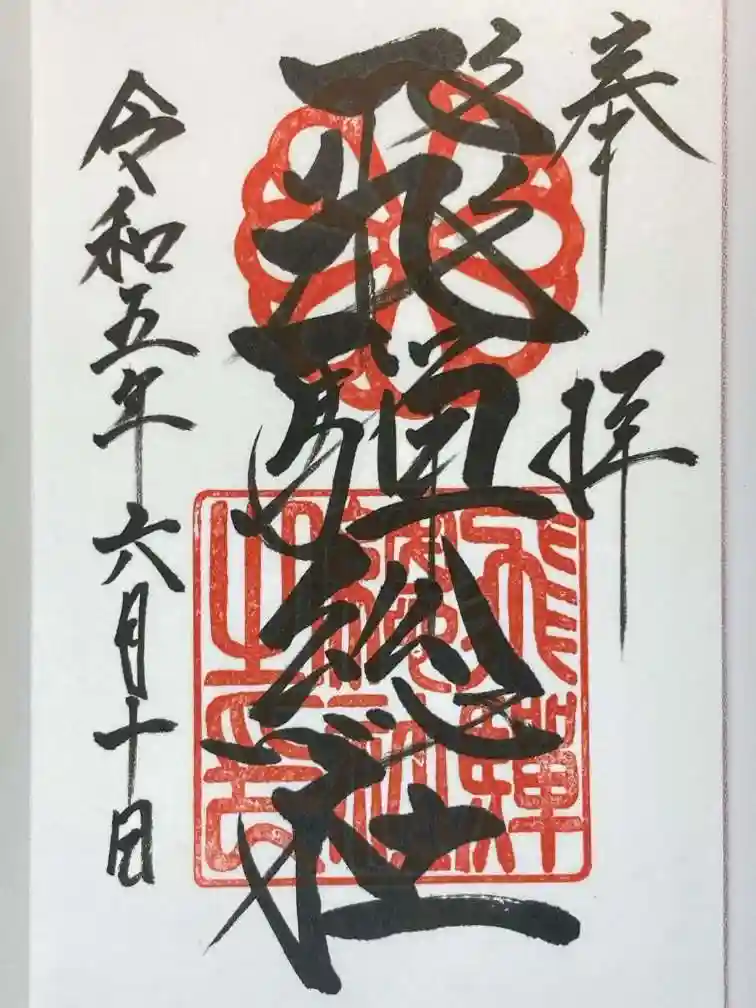 奉拝
飛騨総社
飛騨総社之印
令和五年六月十日